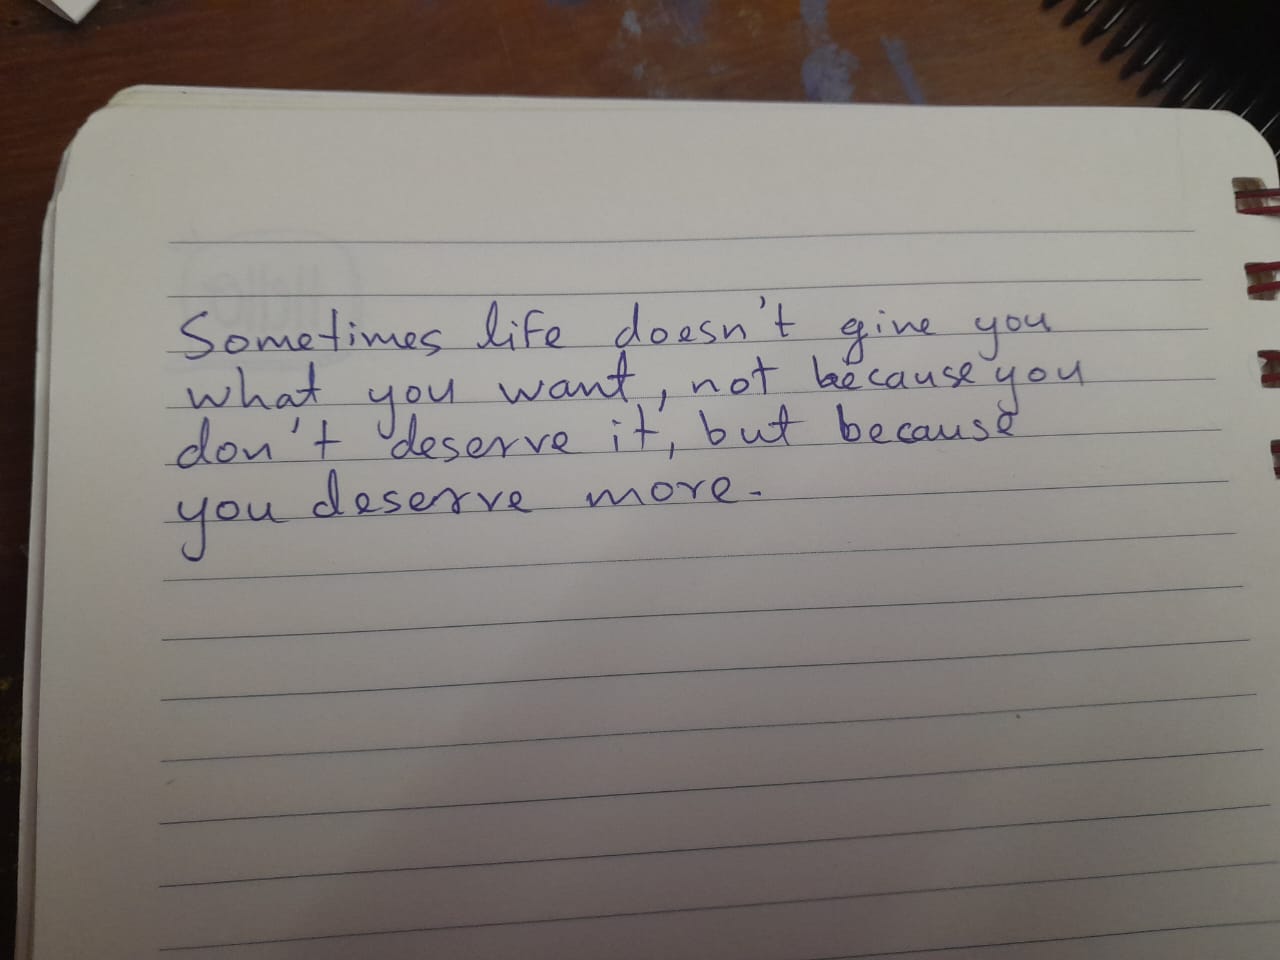 Sometimes life doesn't give you
what you want, not because you
don't deserve it, but because
you deserve more.